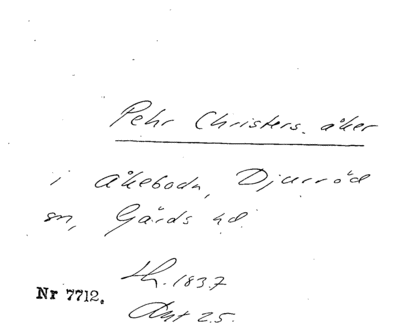 Pehr Christers. åker
i Åkeboda, Djurröd
sn, Gärds hd.
Lh. 1837
Nr 7712.
Akt 25.